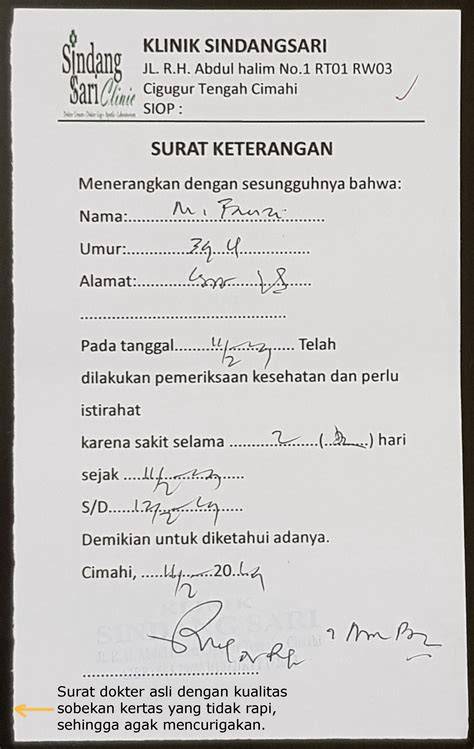 Sindang
Sari Clinic
KLINIK SINDANGSARI
JL. R.H. Abdul halim No.1 RT01 RW03
Cigugur Tengah Cimahi
SIOP :
SURAT KETERANGAN
Menerangkan dengan sesungguhnya bahwa:
Nama:..... M. Fauzi
Umur:.....
Alamat:.....
Pada tanggal..... 11/2 19 ..... Telah
dilakukan pemeriksaan kesehatan dan perlu
istirahat
karena sakit selama ..... 2 .....(.....) hari
sejak ..... 11/2 19 .....
S/D..... 12/2 19 .....
Demikian untuk diketahui adanya.
Cimahi, ..... 11/2 .....20..19
KLINIK
SINDANG SARI
Surat dokter asli dengan kualitas
sobekan kertas yang tidak rapi,
sehingga agak mencurigakan.